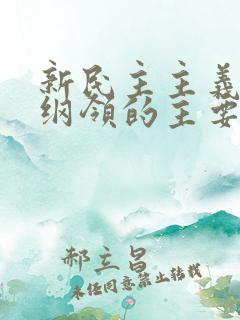 新民主主义
纲领的主要
郝立昌
未经同意禁止转载